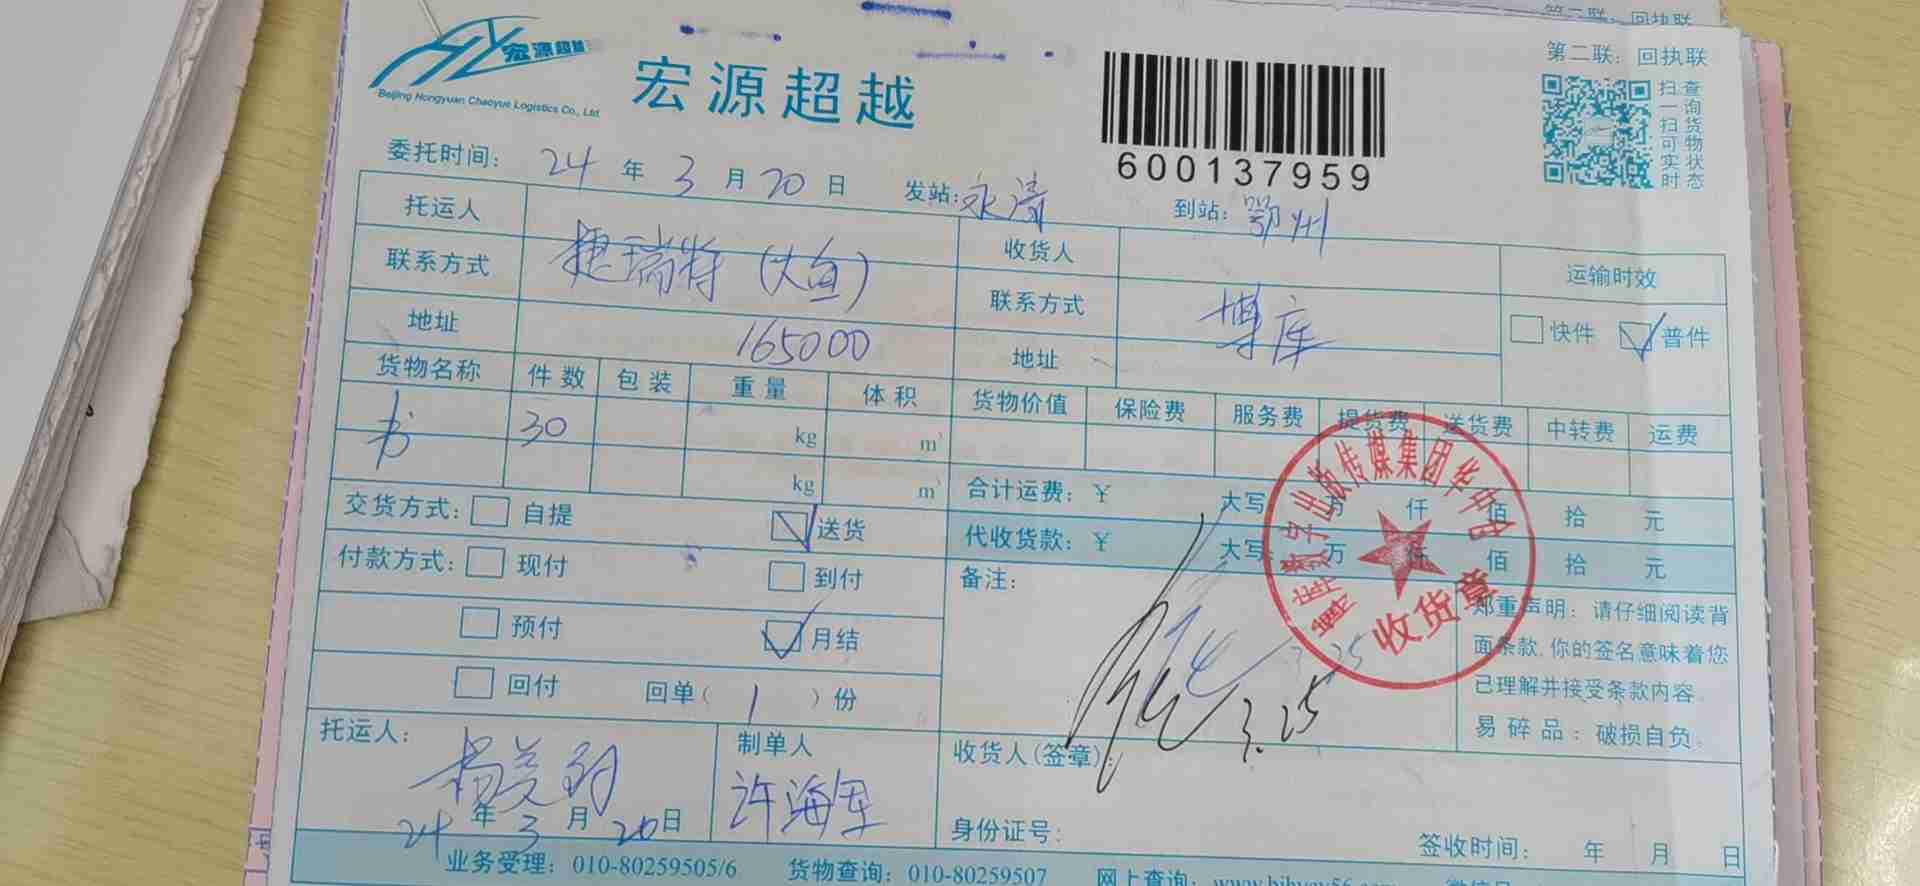 第二联：回执联
宏源超越
Beijing Hongyuan Chaoyue Logistics Co., Ltd
宏源超越
600137959
扫一扫可实时
查询货物状态
委托时间：24年3月20日 发站：永清 到站：鄂州
托运人 收货人 运输时效
联系方式 捷瑞特（大鱼） 联系方式 博库 快件 普件
地址 165000 地址
货物名称 件数 包装 重量 体积 货物价值 保险费 服务费 提货费 送货费 中转费 运费
书 30 kg m³
kg m³
合计运费：¥ 大写 万 仟 佰 拾 元
代收货款：¥ 大写 万 仟 佰 拾 元
交货方式： 自提 送货
付款方式： 现付 到付
预付 月结
回付 回单（1）份
备注：
3.25
3.25
博库数字出版传媒集团华中
收货章
郑重声明：请仔细阅读背
面条款，你的签名意味着您
已理解并接受条款内容。
易碎品：破损自负。
托运人： 制单人 收货人(签章)：
许海军
24年3月20日 身份证号： 签收时间： 年 月 日
业务受理：010-80259505/6 货物查询：010-80259507 网上查询：